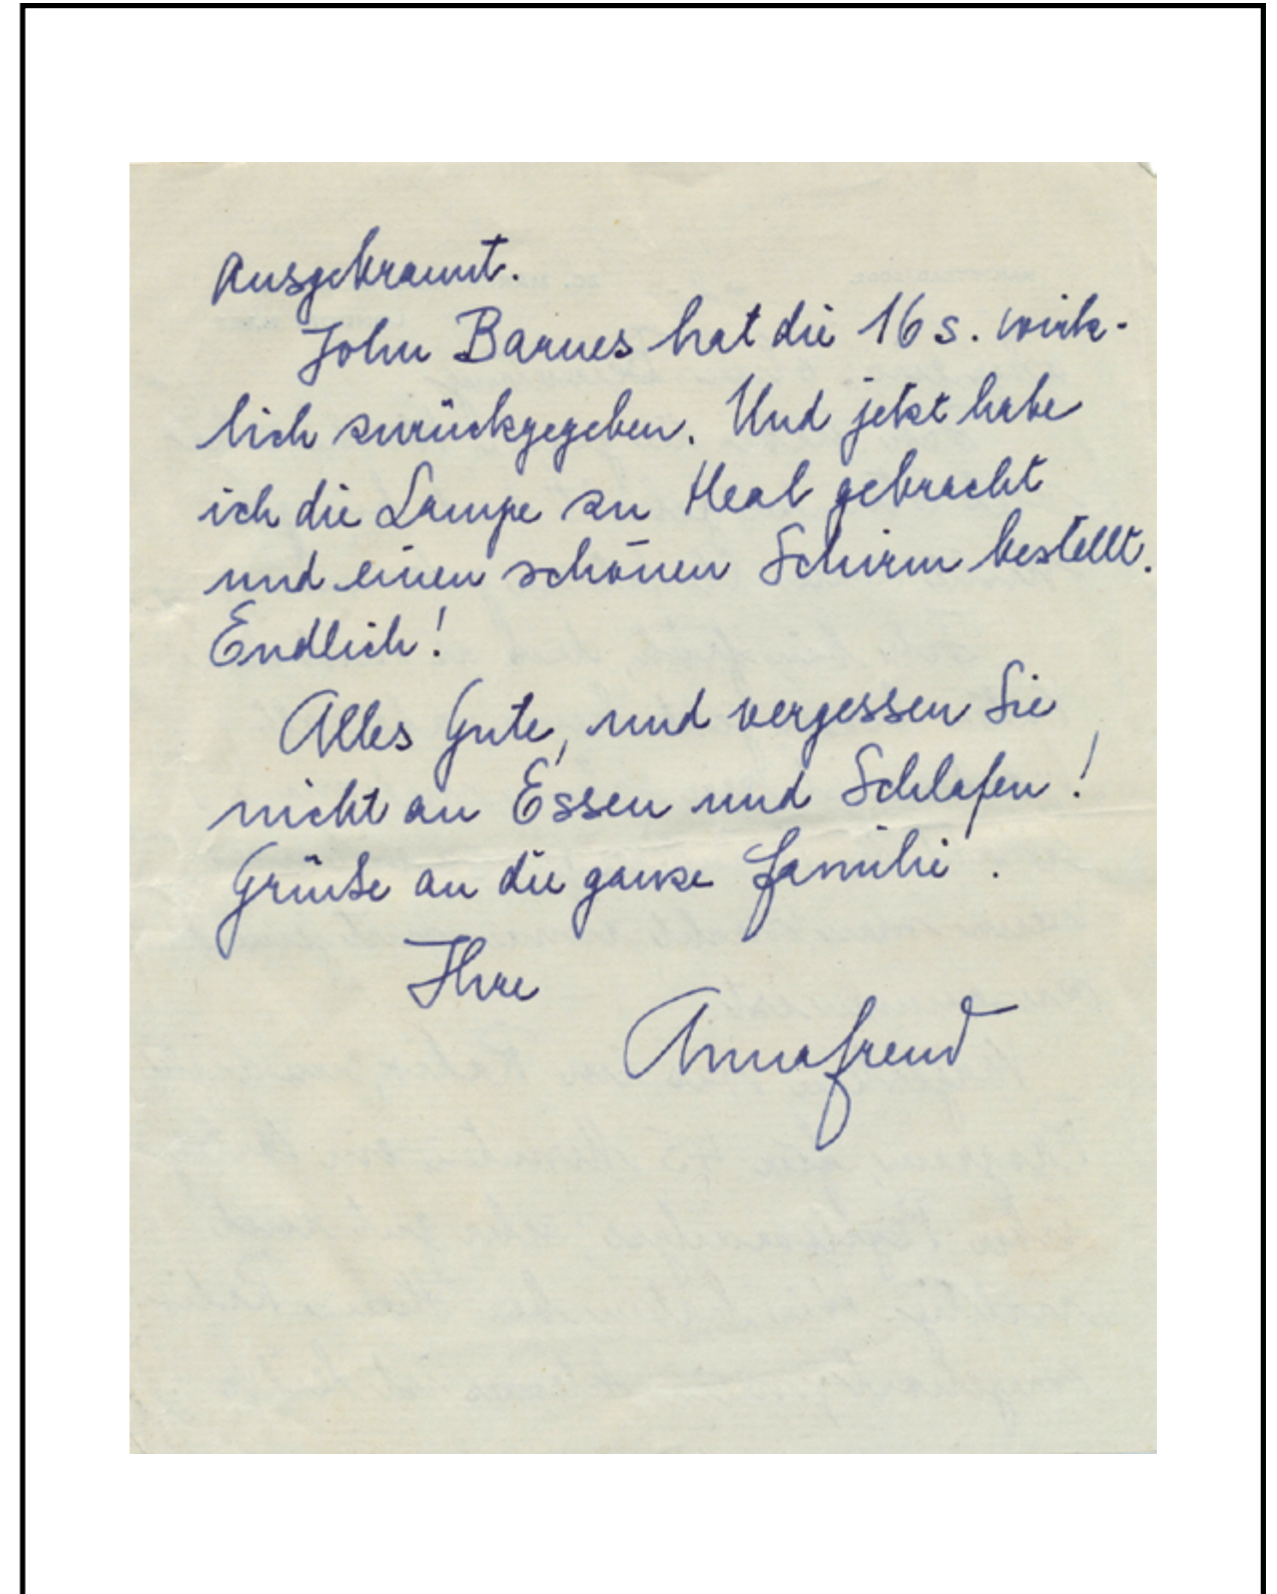 ausgekramt.
John Barnes hat die 16 s. wirk-
lich zurückgegeben. Und jetzt habe
ich die Lampe zu Heal gebracht
und einen schönen Schirm bestellt.
Endlich!
Alles Gute, und vergessen Sie
nicht an Essen und Schlafen!
Grüße an die ganze Familie.
Ihre
Anna Freud